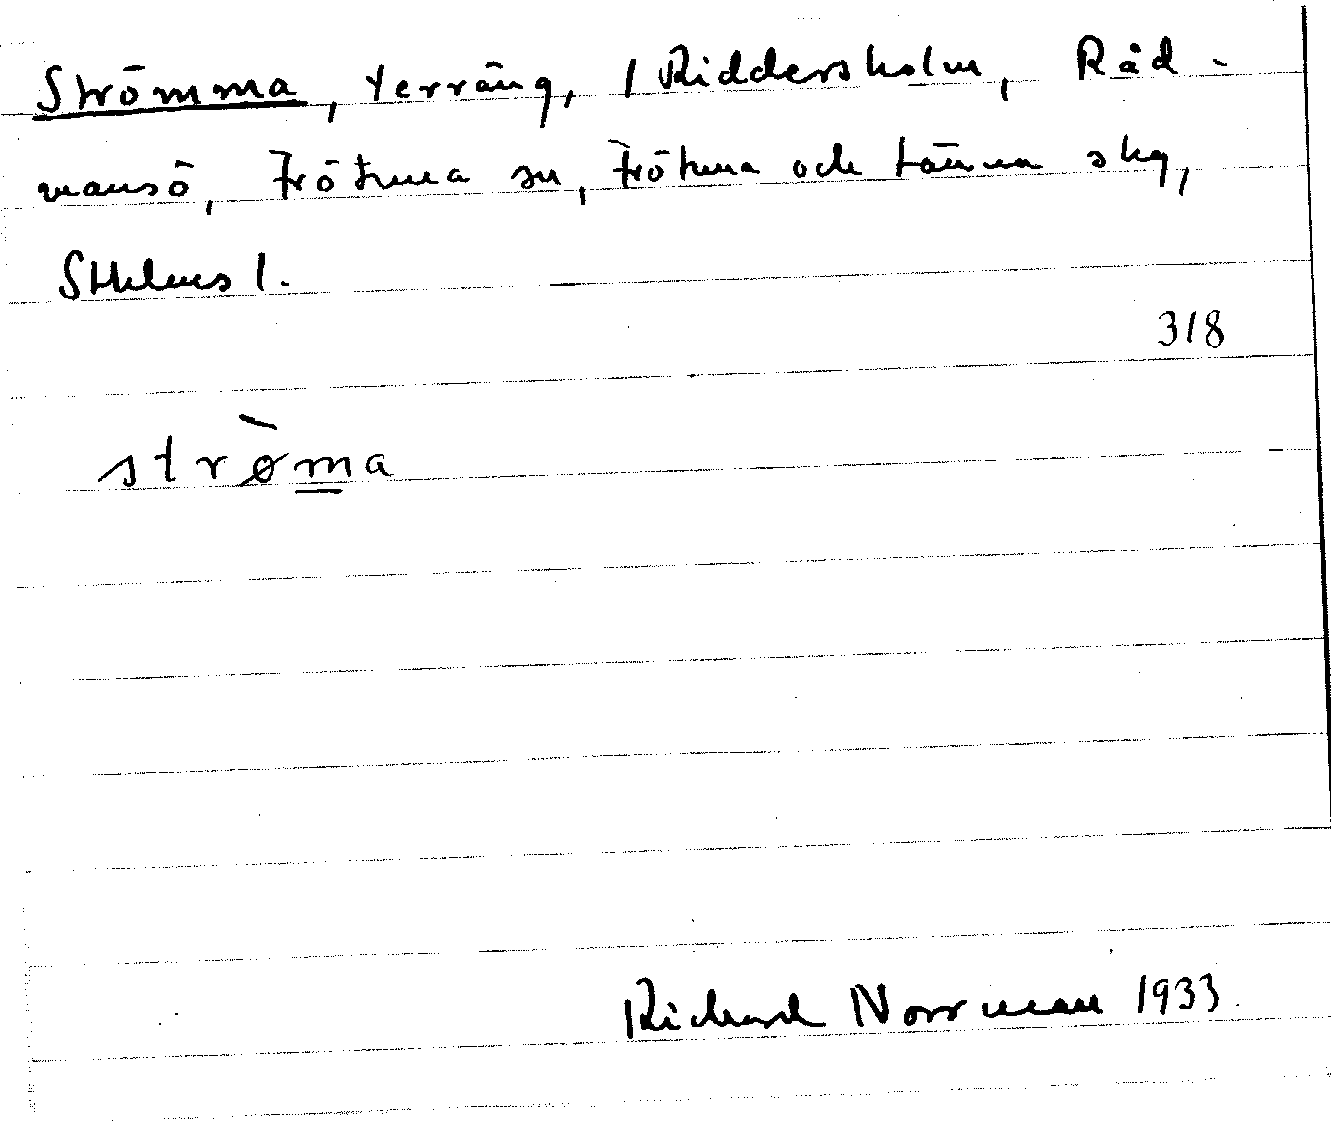 Strömma, terräng, / Riddersholm, Råd-
mansö, Frötuna sn, Frötuna och Länna skg,
Sthlms l.
318
strø̀m̲a
Richard Norrman 1933